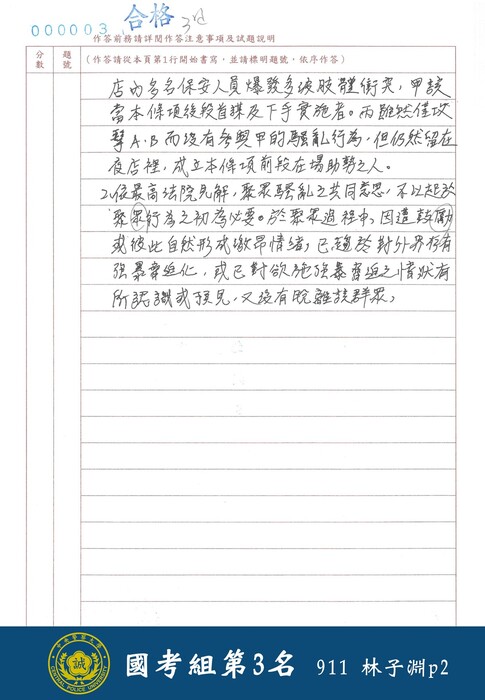 000003
合格
作答前務請詳閱作答注意事項及試題說明
分數
題號
(作答請從本頁第1行開始書寫，並請標明題號，依序作答)
店內多名保安人員爆發多波肢體衝突，甲該
當本條項後段首謀及下手實施者。丙雖然僅攻
擊A、B而沒有參與甲的騷亂行為，但仍然留在
夜店裡，成立本條項前段在場助勢之人。
2.依最高法院見解，聚眾騷亂之共同意思，不以起於
聚眾行為之初為必要。於聚眾過程中，因遭鼓動
或彼此自然形成激昂情緒，已趨於對外界有
強暴脅迫化，或已對欲施強暴脅迫之情狀有
所認識或預見，又沒有脫離該群眾，
中央警察大學
誠
CENTRAL POLICE UNIVERSITY
國考組第3名 911 林子淵p2